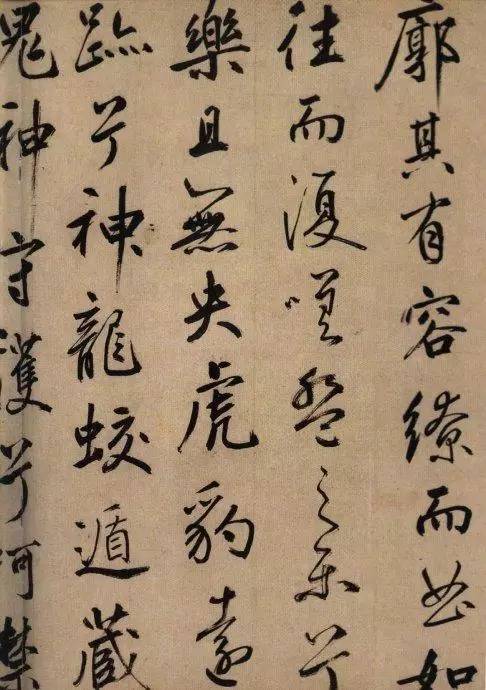 廓其有容繚而曲如
往而復嘆盤之樂兮
樂且無央虎豹遠
跡兮神龍蛟遁藏
鬼神守護兮呵禁